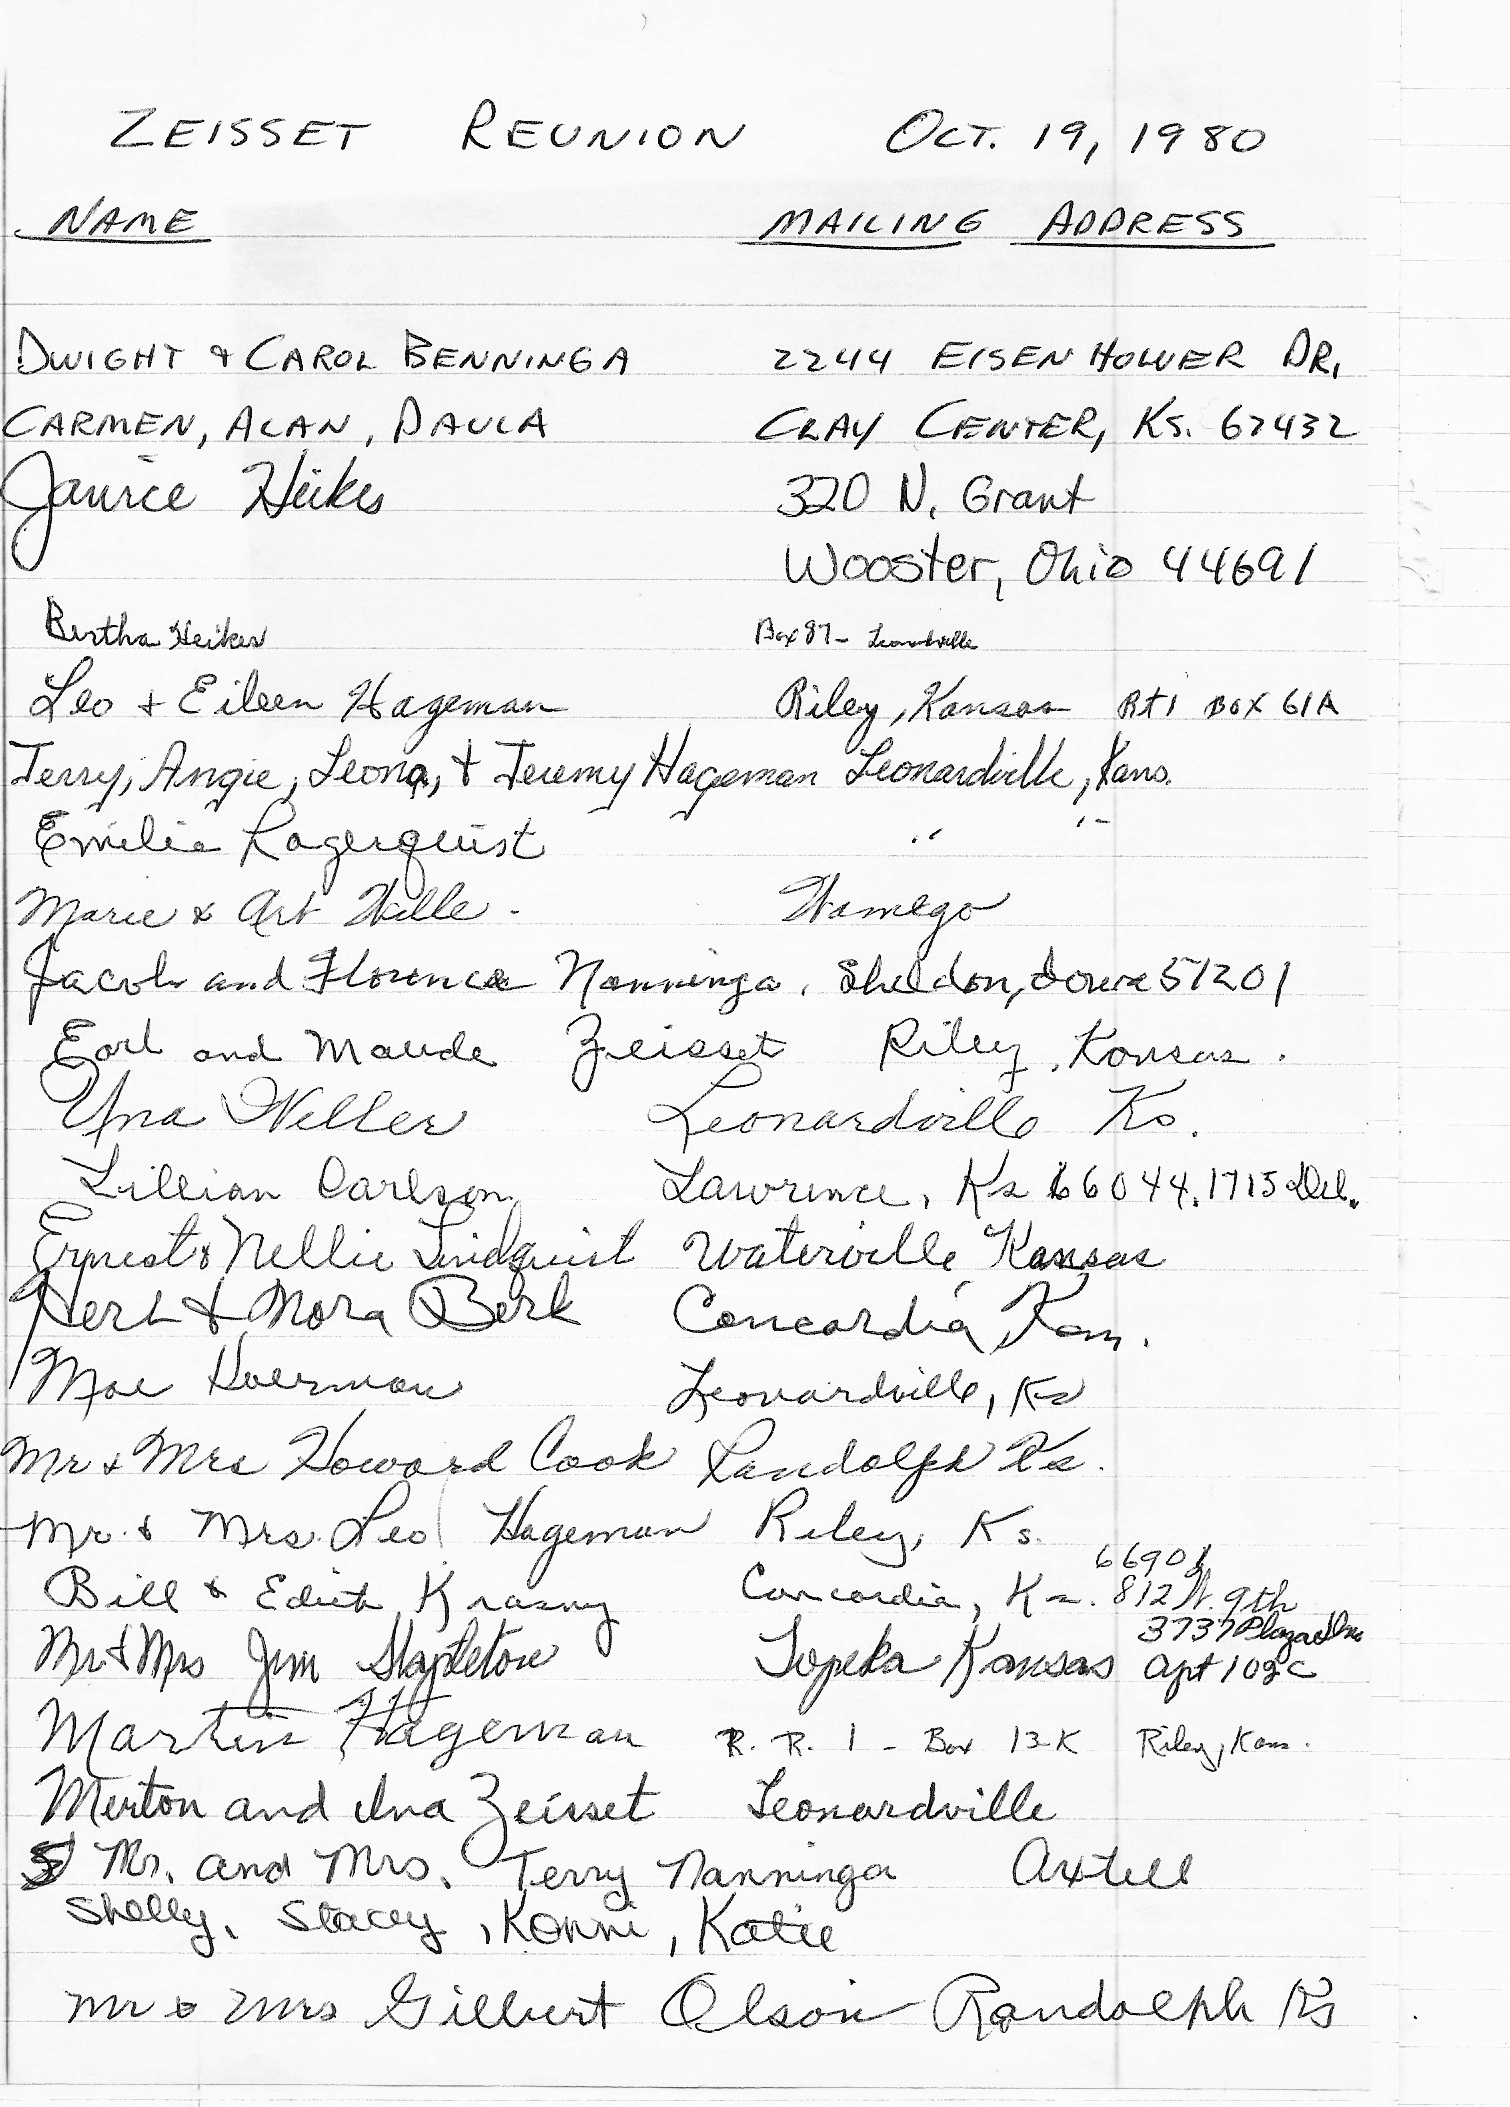 ZEISSET REUNION OCT. 19, 1980
NAME MAILING ADDRESS
DWIGHT & CAROL BENNINGA 2244 EISENHOWER DR.
CARMEN, ALAN, PAULA CLAY CENTER, KS. 67432
Janice Heikes 320 N. Grant
Wooster, Ohio 44691
Bertha Heikes Box 87 - Leonardville
Leo + Eileen Hageman Riley, Kansas Rt 1 Box 61A
Terry, Angie, Leona, + Jeremy Hageman Leonardville, Kans.
Emilie Lagerquist " "
Marie & Art Wille. Wamego
Jacob and Florence Nanninga, Sheldon, Iowa 51201
Earl and Maude Zeisset Riley, Kansas.
Una Weller Leonardville Ks.
Lillian Carlson Lawrence, Ks 66044, 1715 Del.
Ernest & Nellie Lindquist Waterville Kansas
Herb & Nora Berk Concordia, Kan.
Mae Hoerman Leonardville, Ks
Mr & Mrs Howard Cook Randolph Ks.
Mr. & Mrs. Leo Hageman Riley, Ks.
66901
Bill & Edith Krasny Concordia, Ks. 812 W. 9th
3737 Plaza
Mr & Mrs Jim Stapleton Topeka Kansas Apt 102C
Martin Hageman R. R. 1 - Box 13-K Riley, Kans.
Merton and Ina Zeisset Leonardville
Mr. and Mrs. Terry Nanninga Axtell
Shelly, Stacey, Konni, Katie
Mr & Mrs Gilbert Olson Randolph Ks